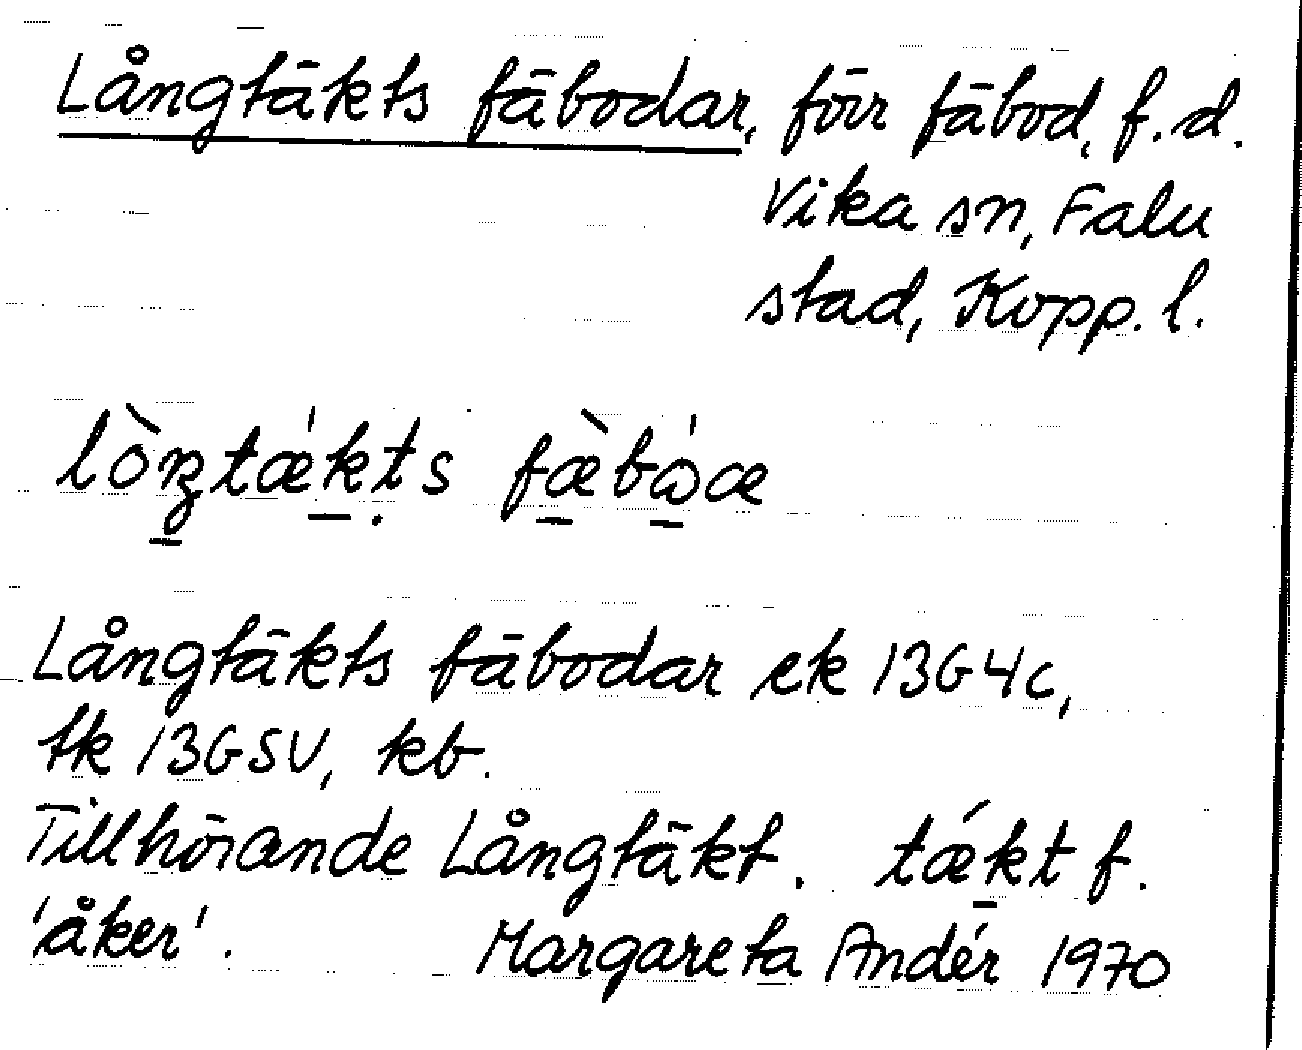 Långtäkts fäbodar, förr fäbod, f.d.
Vika sn, Falu
stad, Kopp. l.
Långtäkts fäbodar ek 13G4c,
tk 13GSV, kb.
Tillhörande Långtäkt. tǽkt f.
'åker'. Margareta Andér 1970